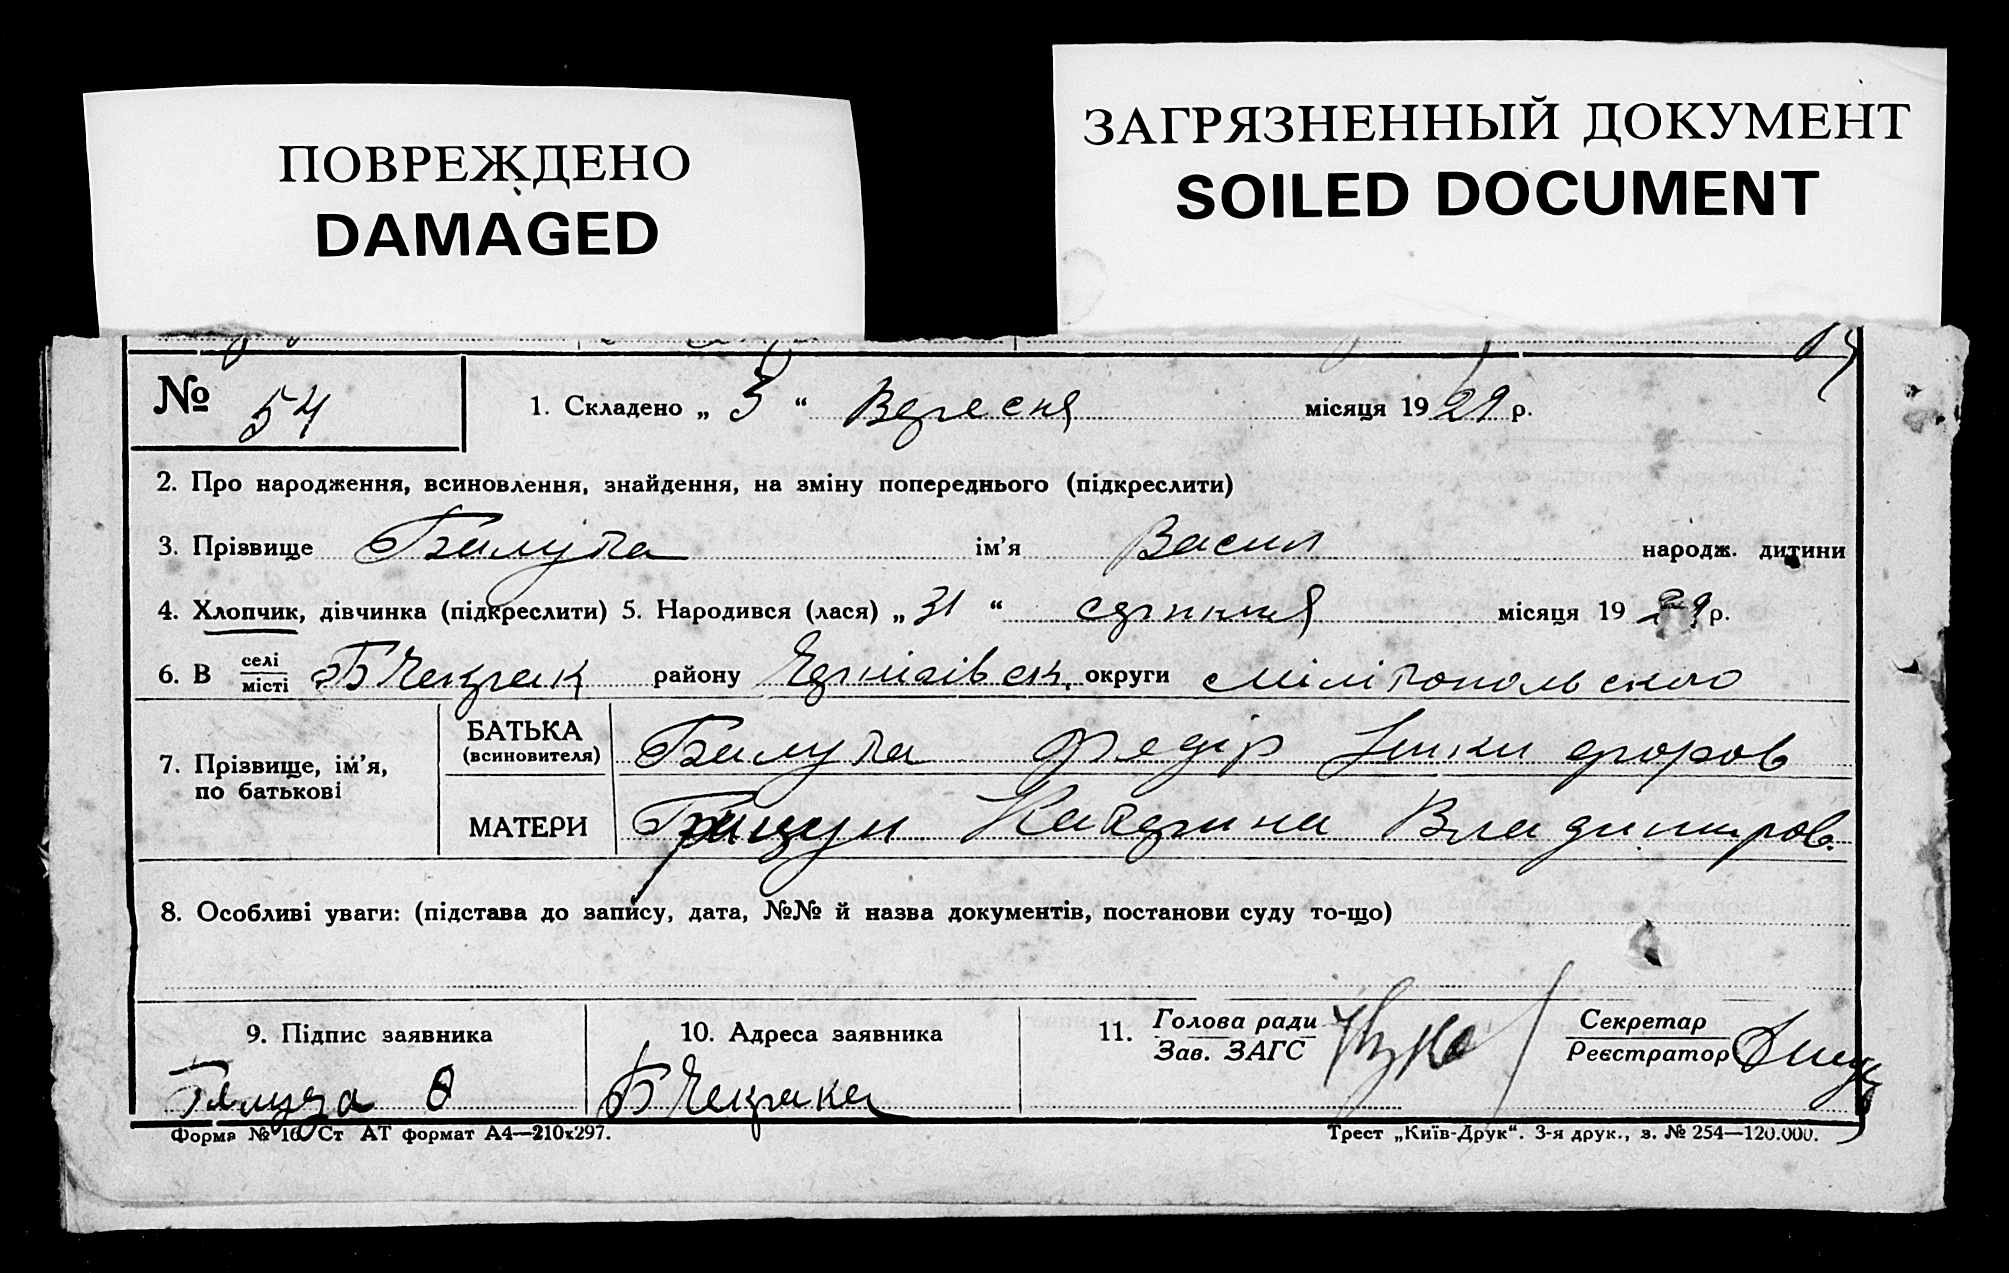 ПОВРЕЖДЕНО
DAMAGED
ЗАГРЯЗНЕННЫЙ ДОКУМЕНТ
SOILED DOCUMENT
№ 54
1. Складено „ 3 “ Вересня місяця 1929 р.
2. Про народження, всиновлення, знайдення, на зміну попереднього (підкреслити)
3. Прізвище Билута ім’я Васил народж. дитини
4. Хлопчик, дівчинка (підкреслити) 5. Народився (лася) „ 31 “ серпня місяця 1929 р.
6. В селі/місті Б Чекрак району Чернігівск. округи Мілітопольского
7. Прізвище, ім’я, по батькові
БАТЬКА (всиновителя) Билута Федір Никифоров
МАТЕРИ Грицун Катерина Владимиров.
8. Особливі уваги: (підстава до запису, дата, №№ й назва документів, постанови суду то-що)
9. Підпис заявника
10. Адреса заявника
11. Голова ради / Зав. ЗАГС
Секретар / Реєстратор
Б Чекрака
Форма № 16 Ст АТ формат А4—210х297.
Трест „Київ-Друк“. 3-я друк., з. № 254—120.000.